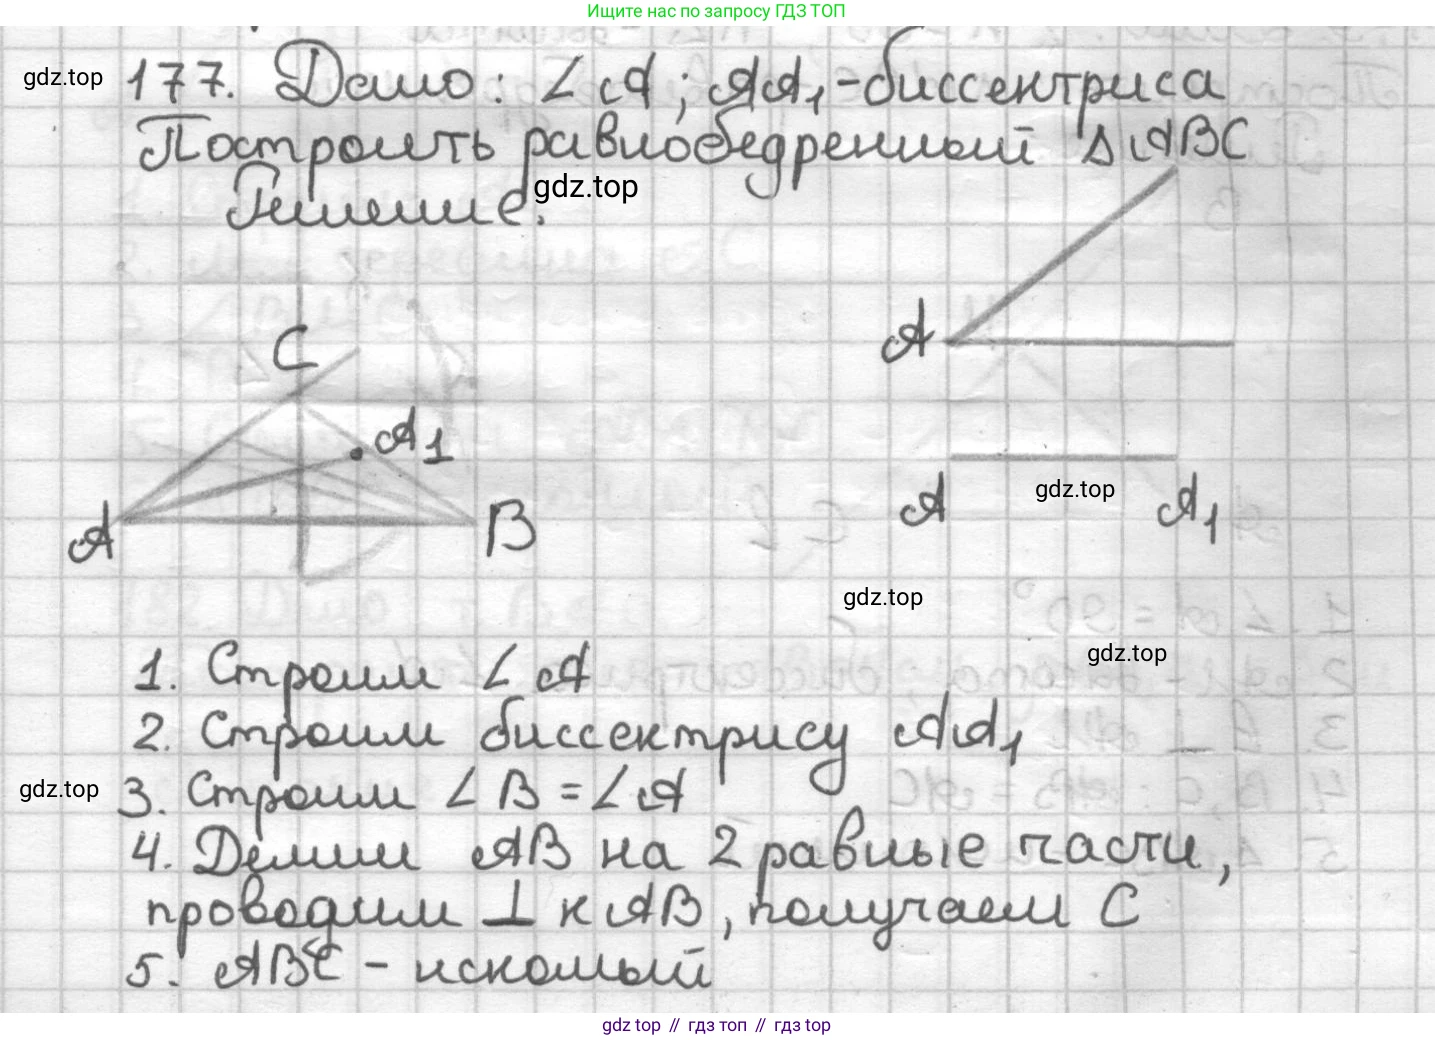 Ищите нас по запросу ГДЗ ТОП
gdz.top
177. Дано: ∠A; AA₁ - биссектриса
Построить равнобедренный ΔABC
gdz.top
Решение.
C
A₁
A
B
A
A
A₁
gdz.top
gdz.top
gdz.top
1. Строим ∠A
2. Строим биссектрису AA₁
gdz.top
3. Строим ∠B = ∠A
4. Делим AB на 2 равные части,
проводим ⊥ к AB, получаем C
5. ABC - искомый
gdz top // гдз топ // gdz top